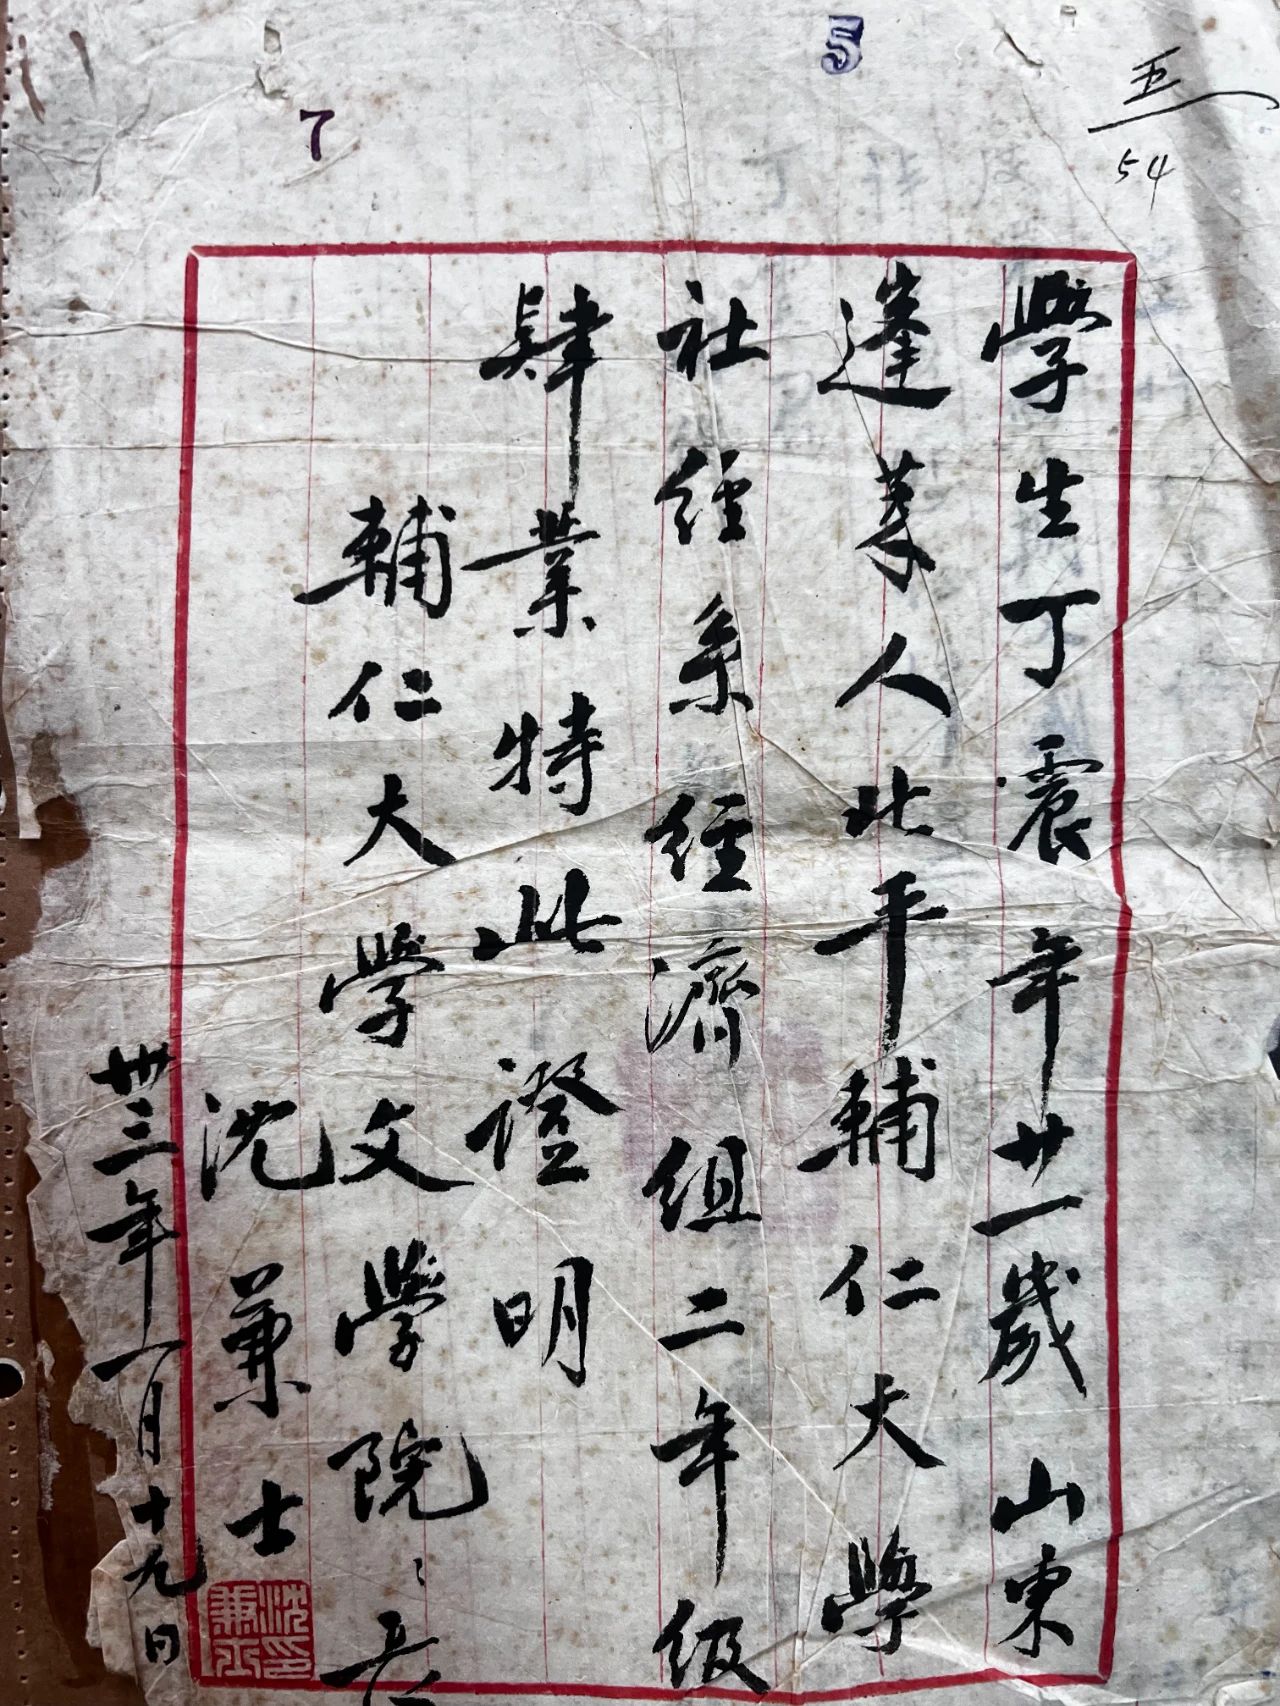 五
54
5
7
學生丁震年廿一歲山東
蓬萊人北平輔仁大學
社經系經濟組二年級
肄業特此證明
輔仁大學文學院：長
沈兼士
沈兼士印
卅三年一月十九日